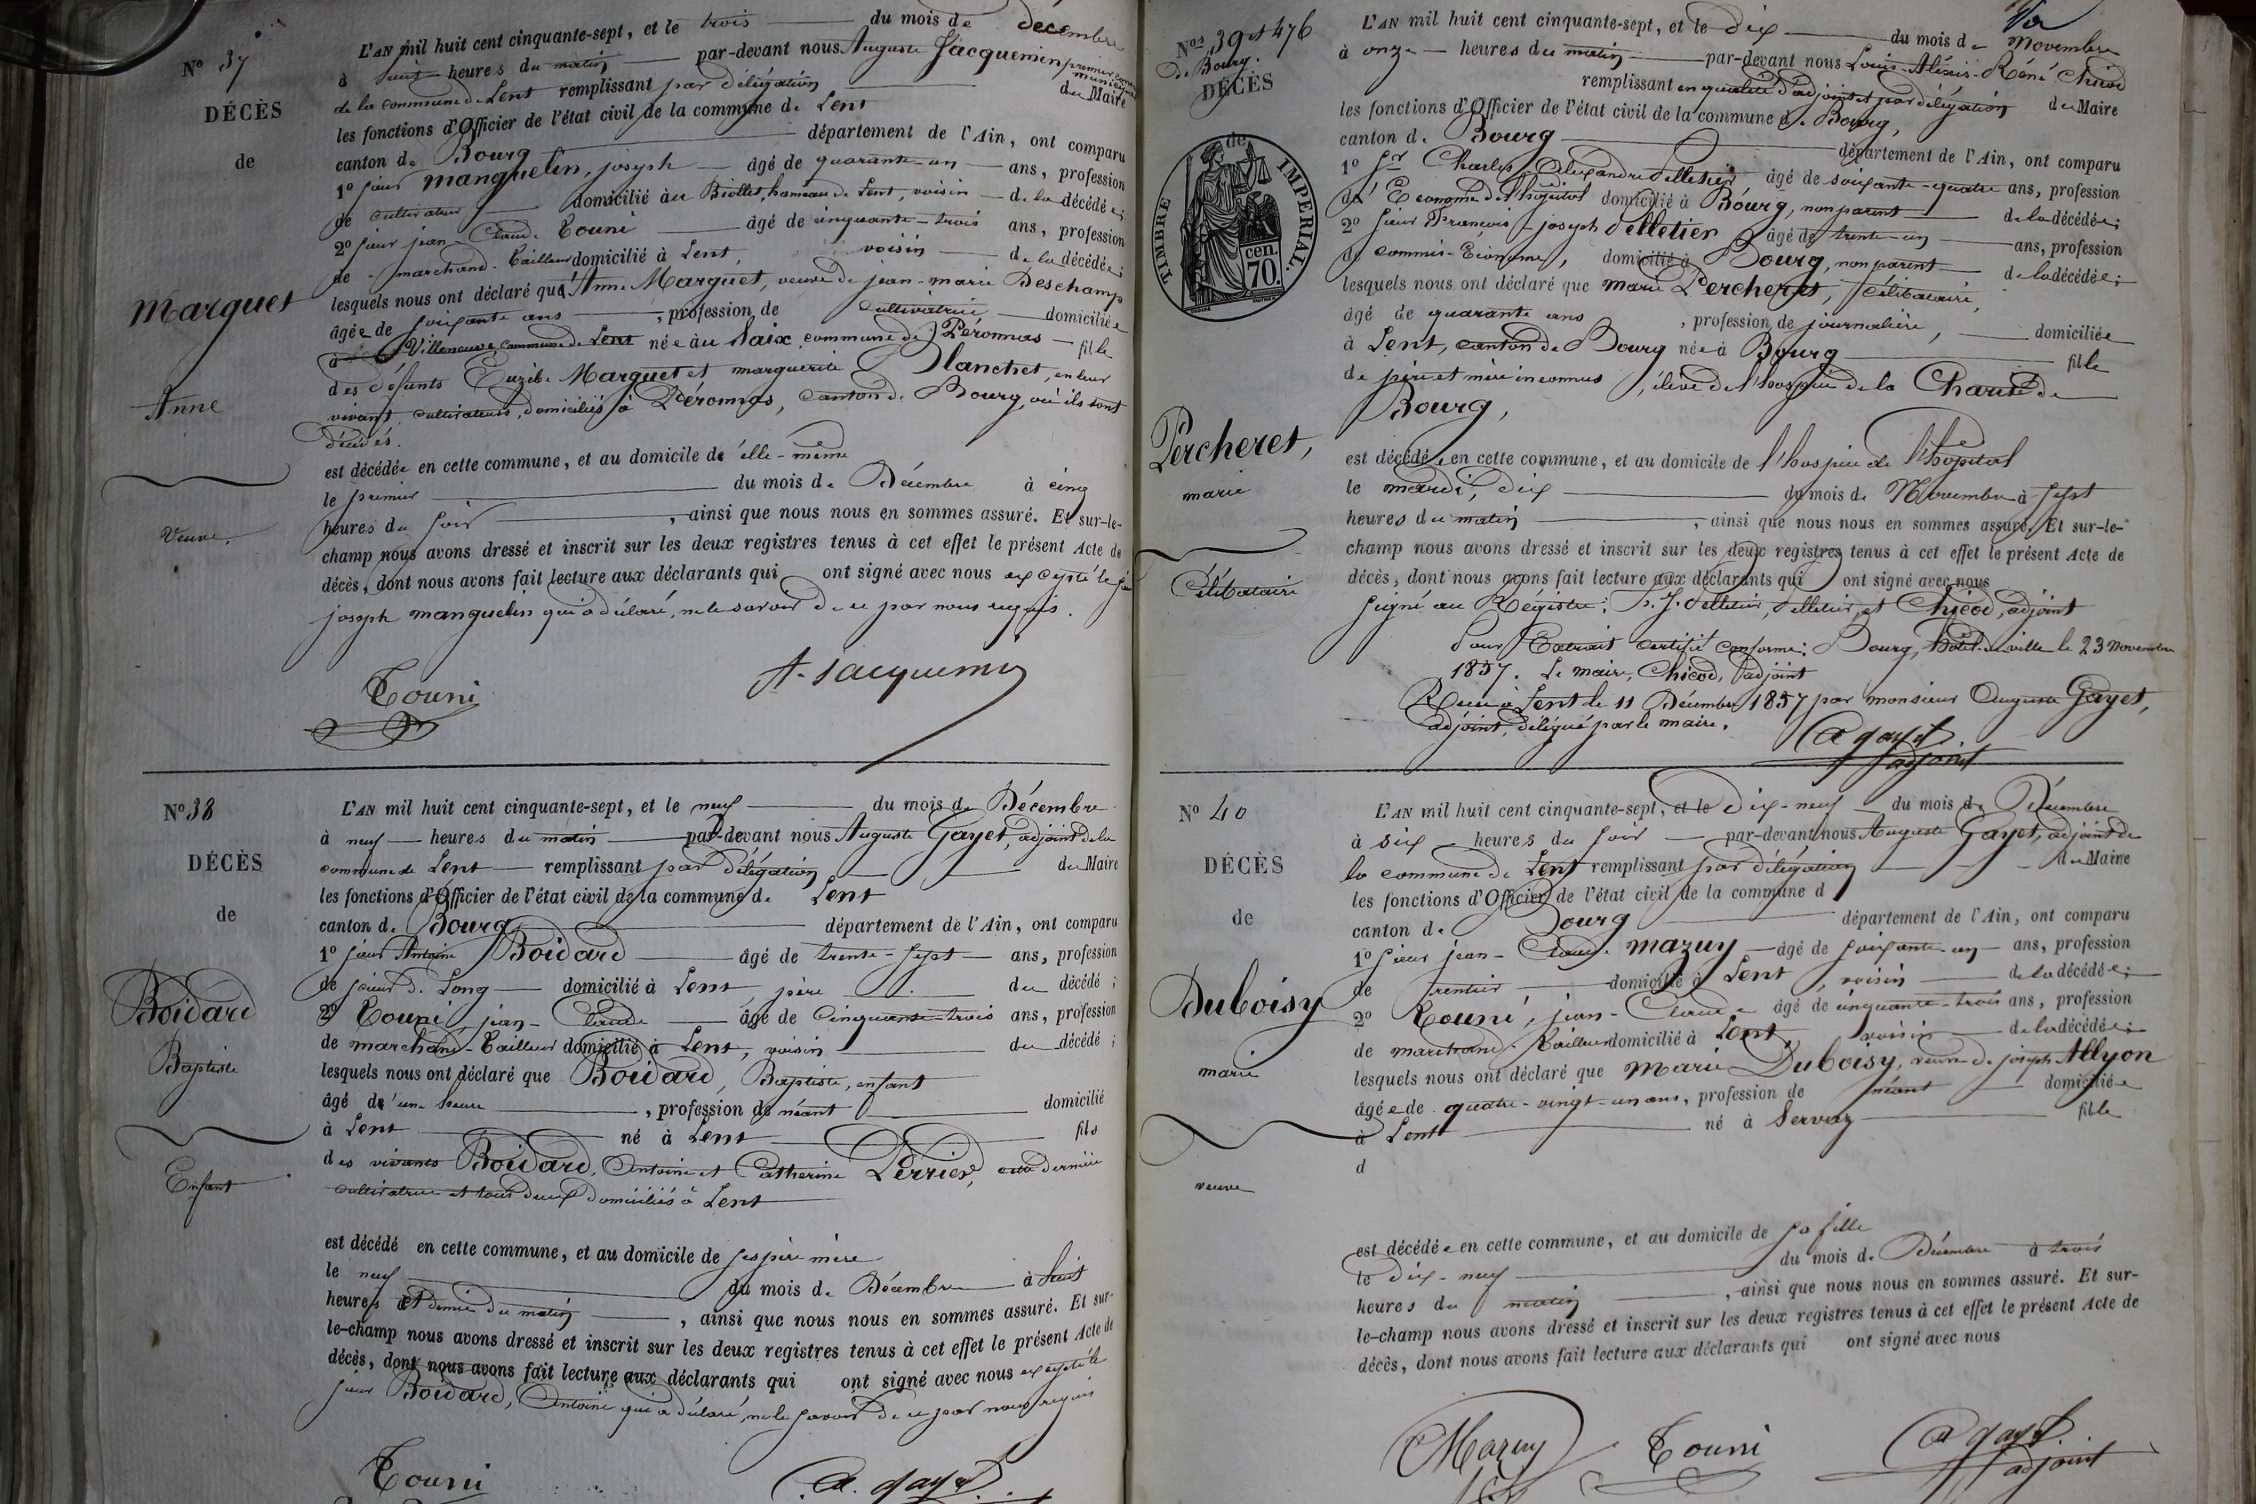 N° 37
DÉCÈS
de
Marguet
Anne
Veuve.
L'AN mil huit cent cinquante-sept, et le trois du mois de décembre
à huit heures du matin par-devant nous Auguste Jacquemin premier
de la commune de Lent remplissant par délégation du Maire
les fonctions d'Officier de l'état civil de la commune de Lent
canton de Bourg département de l'Ain, ont comparu
1° sieur Manguelin, joseph âgé de quarante-un ans, profession
de cultivateur domicilié au Biollet, hameau de Lent, voisin de la décédée;
2° sieur jean-Claude Touni âgé de cinquante-trois ans, profession
de marchand-Tailleur domicilié à Lent, voisin de la décédée;
lesquels nous ont déclaré qu'Anne Marguet, veuve de jean-marie Deschamp
âgée de soixante ans, profession de cultivatrice domiciliée
à Villeneuve commune de Lent née au Saix, commune de Péronnas fille
des défunts Euzèbe Marguet et marguerite Planchet, en leur
vivant cultivateurs, domiciliés à Péronnas, canton de Bourg, où ils sont
décédés.
est décédée en cette commune, et au domicile de elle-même
le premier du mois de Décembre à cinq
heures du soir, ainsi que nous nous en sommes assuré. Et sur-le-
champ nous avons dressé et inscrit sur les deux registres tenus à cet effet le présent Acte de
décès, dont nous avons fait lecture aux déclarants qui ont signé avec nous excepté le
joseph manguelin qui a déclaré, ne le savoir de ce par nous requis.
Touni
A. Jacquemin
N° 38
DÉCÈS
de
Boidard
Baptiste
Enfant
L'AN mil huit cent cinquante-sept, et le neuf du mois de Décembre
à neuf heures du matin par-devant nous Auguste Gayet, adjoint de la
commune de Lent remplissant par délégation du Maire
les fonctions d'Officier de l'état civil de la commune de Lent
canton de Bourg département de l'Ain, ont comparu
1° sieur Antoine Boidard âgé de trente-sept ans, profession
de scieur de Long domicilié à Lent père du décédé;
2° Touni, jean-Claude âgé de cinquante-trois ans, profession
de marchand-Tailleur domicilié à Lent, voisin du décédé;
lesquels nous ont déclaré que Boidard, Baptiste, enfant
âgé d'une heure, profession de néant domicilié
à Lent né à Lent fils
des vivants Boidard, Antoine et Catherine Perrier, cette dernière
cultivatrice et tous deux domiciliés à Lent
est décédé en cette commune, et au domicile de ses père mère
le neuf du mois de Décembre à huit
heures et demie du matin, ainsi que nous nous en sommes assuré. Et sur-
le-champ nous avons dressé et inscrit sur les deux registres tenus à cet effet le présent Acte de
décès, dont nous avons fait lecture aux déclarants qui ont signé avec nous excepté le
sieur Boidard, Antoine qui a déclaré, ne le savoir de ce par nous requis
Touni
A. Gayet
Nos 39 et 476
de Bourg.
DÉCÈS
TIMBRE IMPÉRIAL.
de
cen.
70.
Percheret,
marie
Célibataire
L'AN mil huit cent cinquante-sept, et le dix du mois de Novembre
à onze heures du matin par-devant nous Louis-Aléxis-Réné Chicod
remplissant en qualité d'adjoint et par délégation du Maire
les fonctions d'Officier de l'état civil de la commune de Bourg,
canton de Bourg département de l'Ain, ont comparu
1° Sr Charles Alexandre Pelletier âgé de soixante-quatre ans, profession
d'Econome de l'hôpital domicilié à Bourg, non parent de la décédée;
2° sieur François-joseph Pelletier âgé de trente-un ans, profession
de commis-Econome, domicilié à Bourg, non parent de la décédée;
lesquels nous ont déclaré que marie Percheret, célibataire,
âgé de quarante ans, profession de journalière, domiciliée
à Lent, canton de Bourg née à Bourg fille
de père et mère inconnus, élève de l'hospice de la Charité de
Bourg,
est décédée en cette commune, et au domicile de l'hospice de l'hôpital
le mardi, dix du mois de Novembre à sept
heures du matin, ainsi que nous nous en sommes assuré. Et sur-le-
champ nous avons dressé et inscrit sur les deux registres tenus à cet effet le présent Acte de
décès, dont nous avons fait lecture aux déclarants qui ont signé avec nous
signé au Régistre: F. J. Pelletier, Pelletier, et Chicod, adjoint
Pour Extrait certifié conforme: Bourg, hôtel de ville le 23 novembre
1857. Le maire, Chicod, adjoint
Reçu à Lent le 11 Décembre 1857 par monsieur Auguste Gayet,
adjoint, délégué par le maire.
A Gayet
adjoint
N° 40
DÉCÈS
de
Duboisy
marie
veuve
L'AN mil huit cent cinquante-sept, et le Dix-neuf du mois de Décembre
à six heures du soir par-devant nous Auguste Gayet, adjoint de
la commune de Lent remplissant par délégation du Maire
les fonctions d'Officier de l'état civil de la commune d
canton de Bourg département de l'Ain, ont comparu
1° sieur jean-Claude Mazuy âgé de soixante-un ans, profession
de rentier domicilié à Lent, voisin de la décédée;
2° Touni, jean-Claude âgé de cinquante-trois ans, profession
de marchand-Tailleur domicilié à Lent, voisin de la décédée;
lesquels nous ont déclaré que marie Duboisy, veuve de joseph Allyon
âgée de quatre-vingt-un ans, profession de néant domiciliée
à Lent né à Servaz fille
d
est décédée en cette commune, et au domicile de sa fille
le Dix-neuf du mois de Décembre à trois
heures du matin, ainsi que nous nous en sommes assuré. Et sur-
le-champ nous avons dressé et inscrit sur les deux registres tenus à cet effet le présent Acte de
décès, dont nous avons fait lecture aux déclarants qui ont signé avec nous
Mazuy
Touni
A Gayet
adjoint